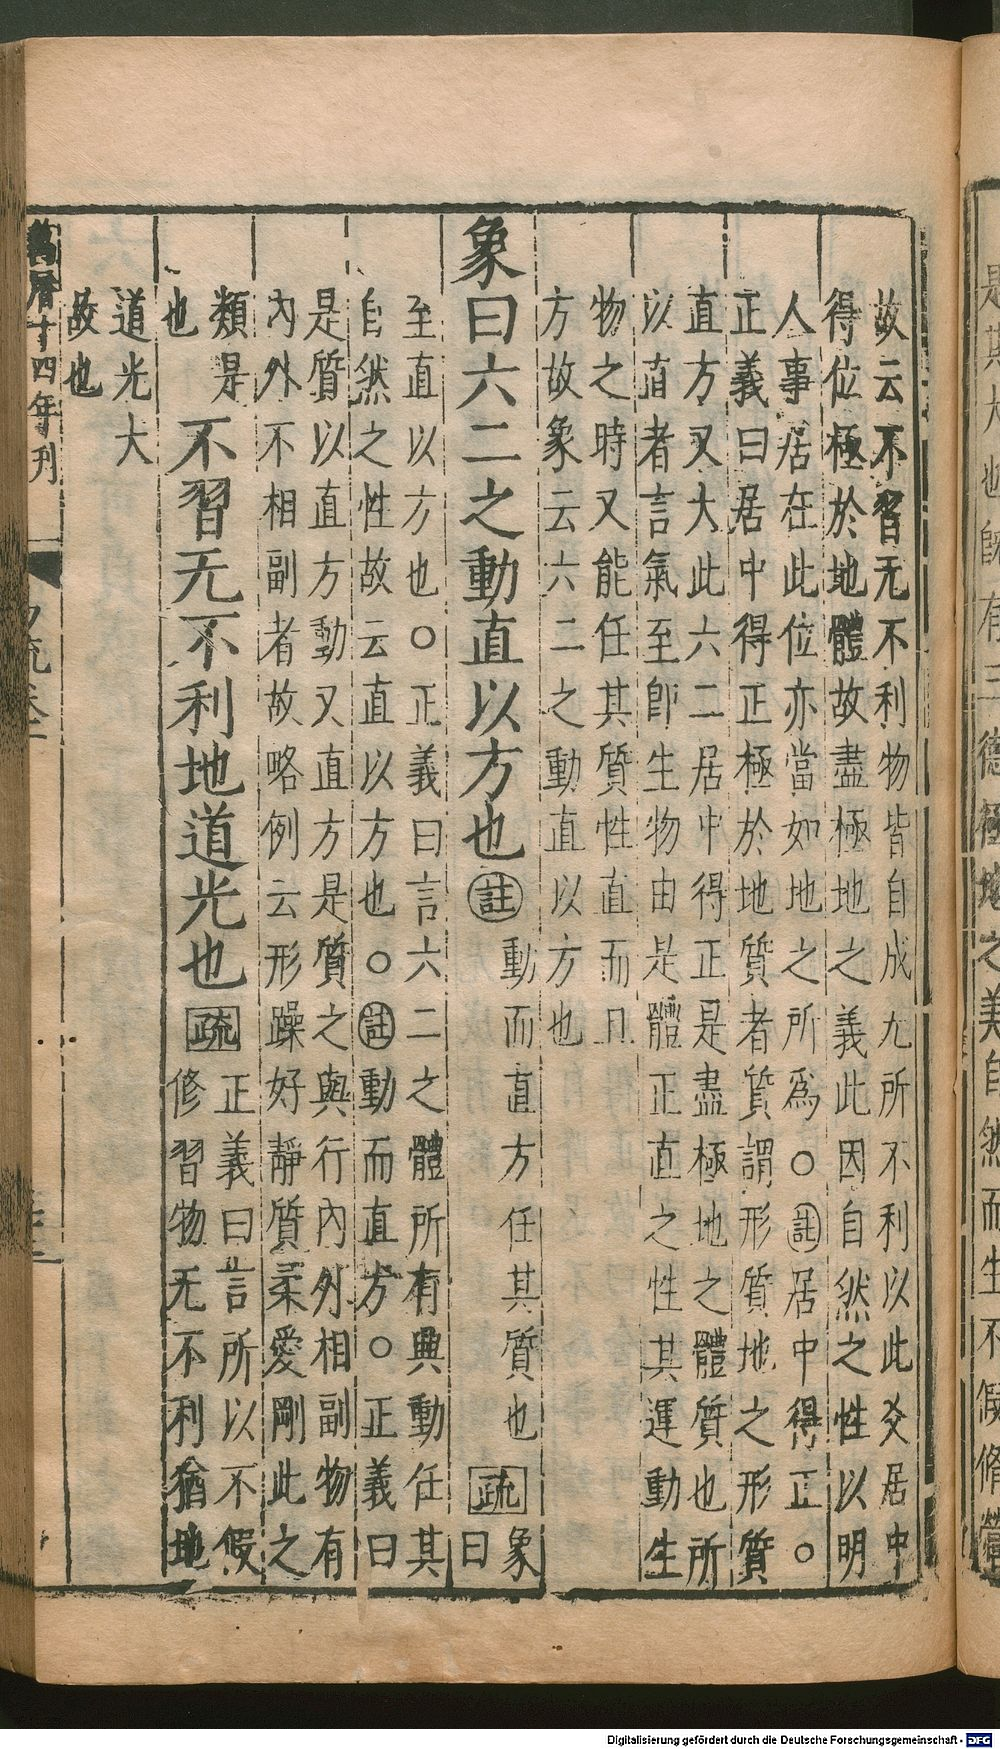 故云不習无不利物皆自成尢所不利以此爻居中
得位極於地體故盡極地之義此因自然之性以明
人事居在此位亦當如地之所爲○註居中得正○
正義曰居中得正極於地質者質謂形質地之形質
直方又大此六二居中得正是盡極地之體質也所
以直者言氣至即生物由是體正直之性其運動生
物之時又能任其質性直而且
方故象云六二之動直以方也
象曰六二之動直以方也註
動而直方任其質也
疏
象
曰
至直以方也○正義曰言六二之體所有興動任其
自然之性故云直以方也○註動而直方○正義曰
是質以直方動又直方是質之與行內外相副物有
內外不相副者故略例云形躁好靜質柔愛剛此之
類是
也
不習无不利地道光也疏
正義曰言所以不假
修習物无不利猶地
道光大
故也
萬曆十四年刊
易疏卷二
Digitalisierung gefördert durch die Deutsche Forschungsgemeinschaft - DFG